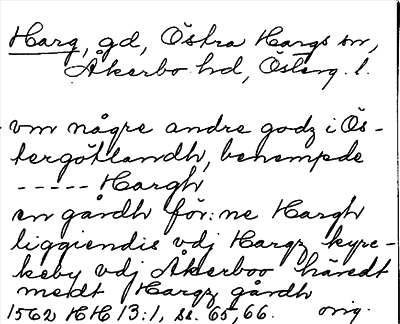 Harg, gd, Östra Hargs sn,
Åkerbo hd, Österg. l.
vm någre andre godz i Ös-
tergötlandh, benempde
----- Hargh
en gårdh för:ne Hargh
liggiendis vdj Hargz kyre-
keby vdj Åkerboo häredt
medt Hargz gårdh
1562 HH 13:1, ss. 65, 66. orig.